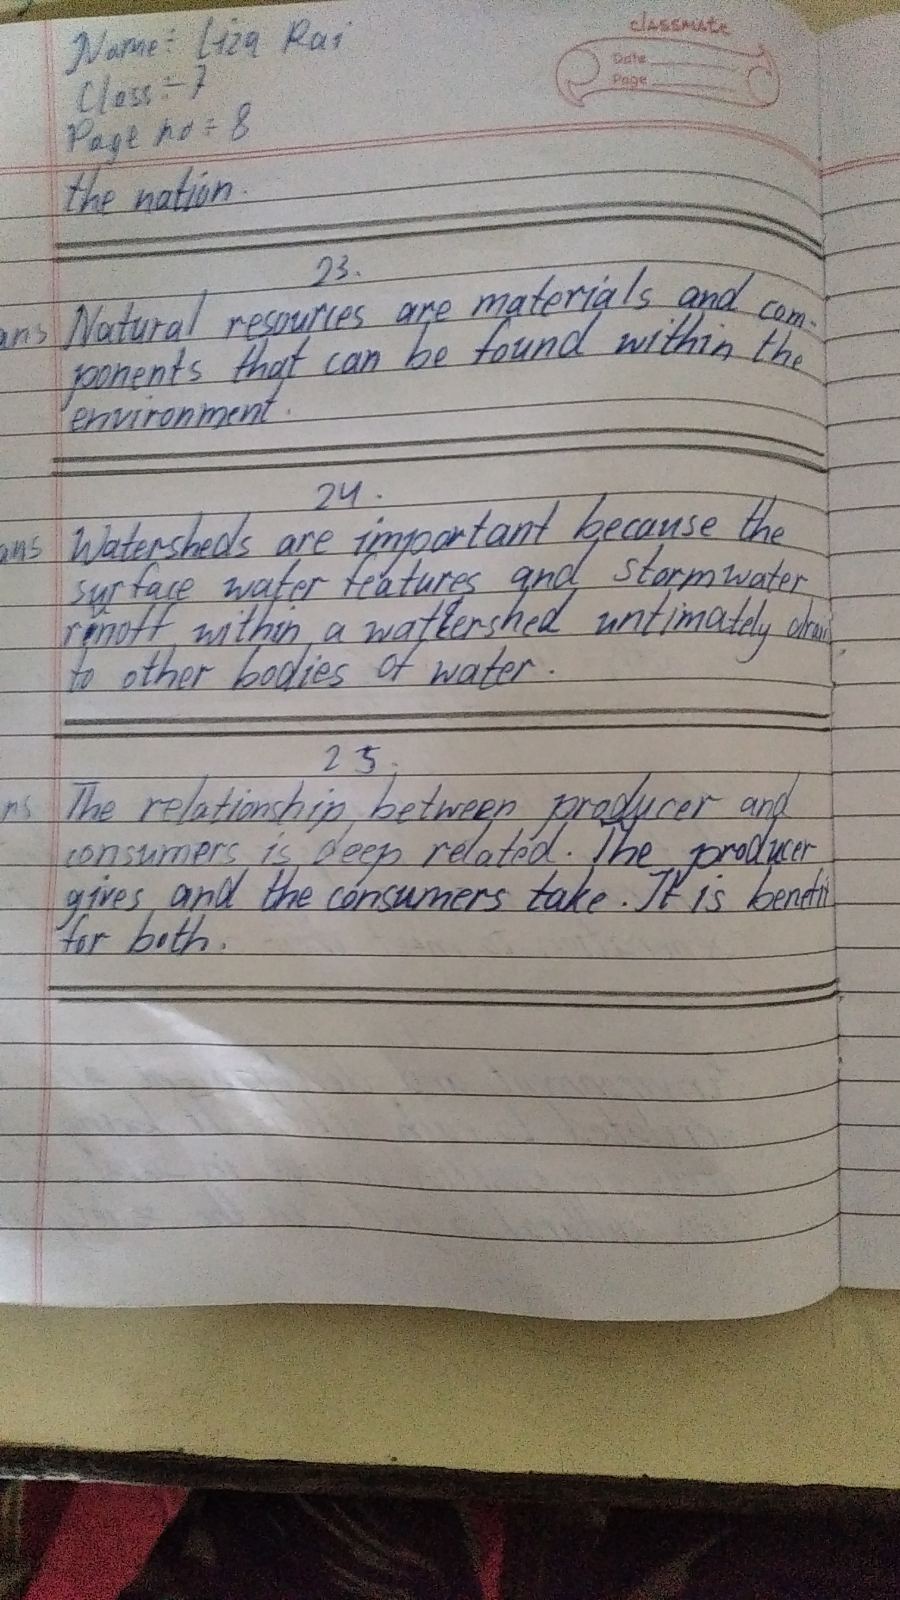 Name:- Liza Rai
Class:- 7
Page no = 8
classmate
Date
Page
the nation.
23.
ans Natural resources are materials and com-
ponents that can be found within the
environment.
24.
ans Watersheds are important because the
surface water features and stormwater
runoff within a wattershed untimately drain
to other bodies of water.
25.
ns The relationship between producer and
consumers is deep related. The producer
gives and the consumers take. It is benefit
for both.